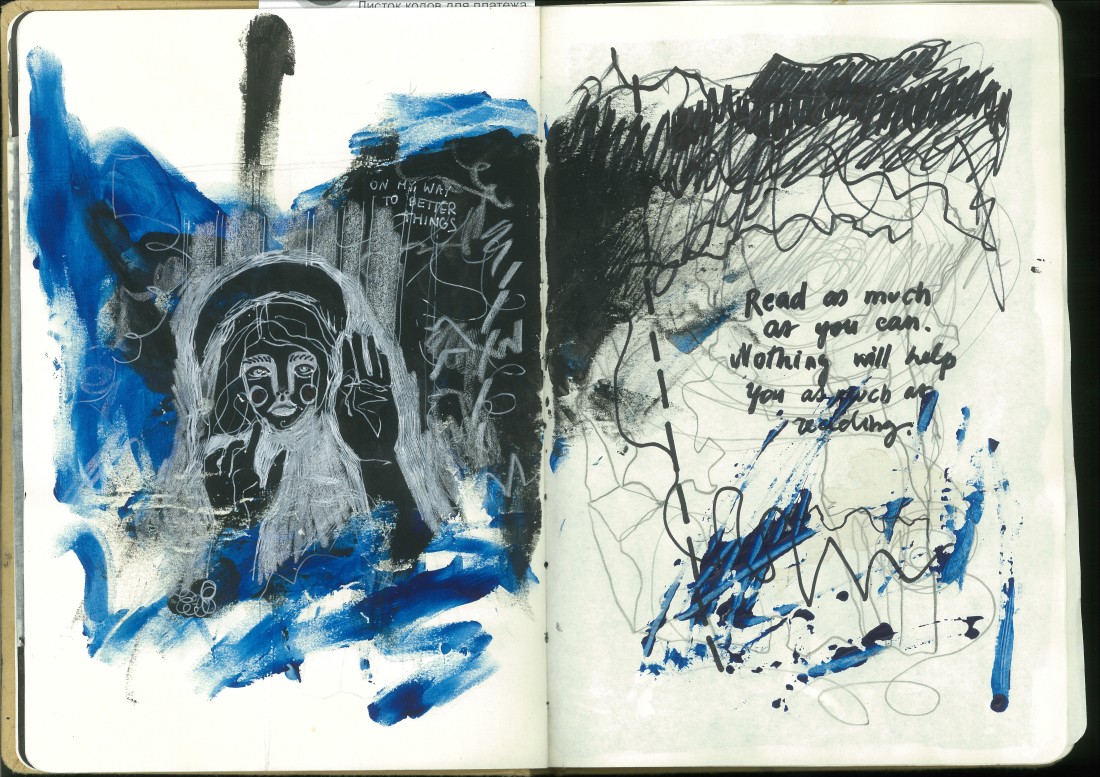 Листок кодов для платежа
ON MY WAY
TO BETTER
THINGS
Read as much
as you can.
Nothing will help
you as much as
reading.